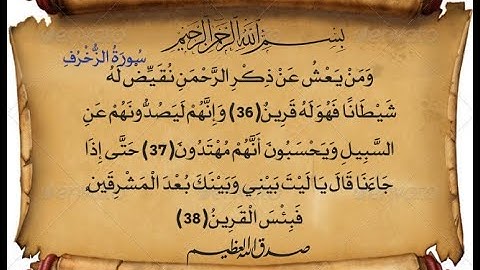 بِسْمِ اللَّهِ الرَّحْمَنِ الرَّحِيمِ
سُورَةُ الزُّخْرُفِ
وَمَنْ يَعْشُ عَنْ ذِكْرِ الرَّحْمَنِ نُقَيِّضْ لَهُ
شَيْطَانًا فَهُوَ لَهُ قَرِينٌ(36) وَإِنَّهُمْ لَيَصُدُّونَهُمْ عَنِ
السَّبِيلِ وَيَحْسَبُونَ أَنَّهُمْ مُهْتَدُونَ(37) حَتَّى إِذَا
جَاءَنَا قَالَ يَا لَيْتَ بَيْنِي وَبَيْنَكَ بُعْدَ الْمَشْرِقَيْنِ
فَبِئْسَ الْقَرِينُ(38)
صدق الله العظيم